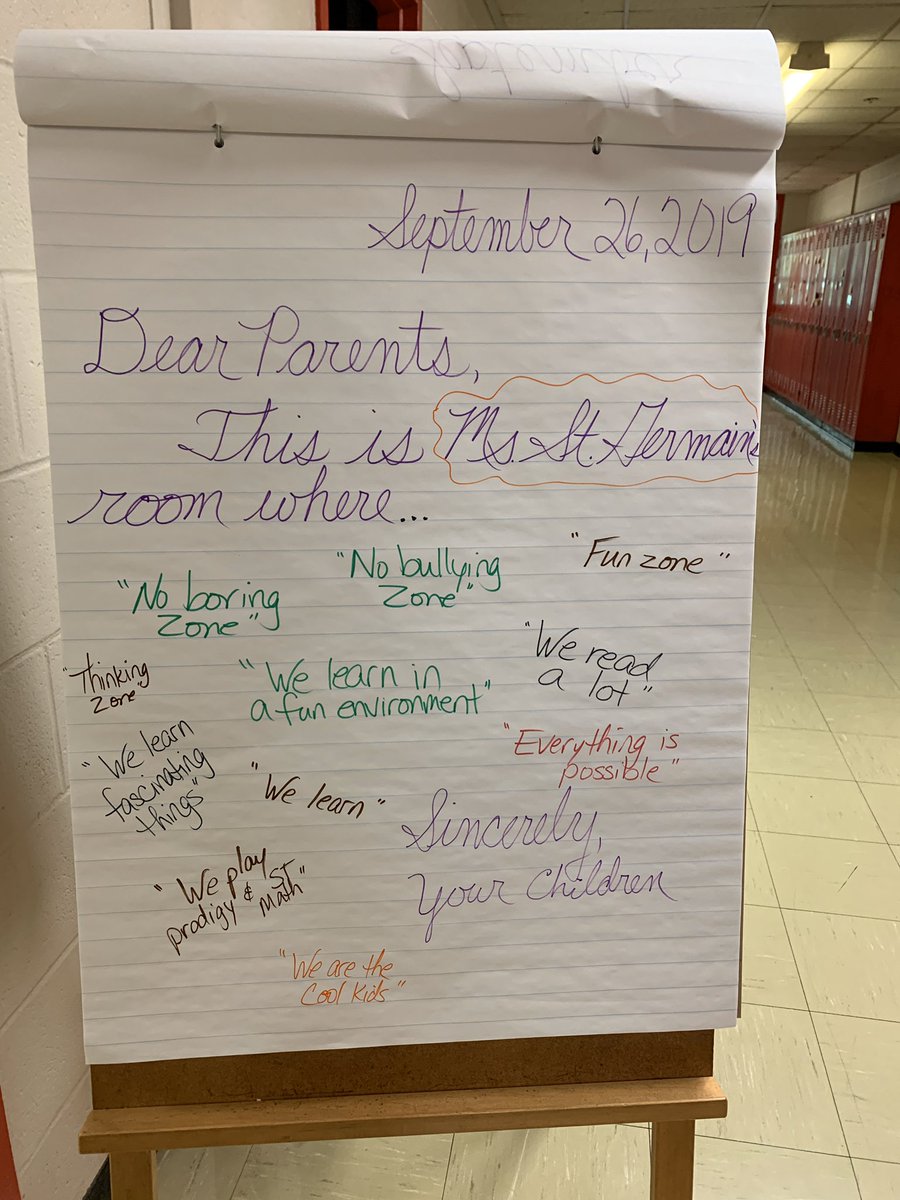 September 26, 2019
Dear Parents,
This is Ms. St. Germain's
room where...
"No boring
Zone"
"No bullying
Zone"
"Fun zone"
"Thinking
Zone"
"We learn in
a fun environment"
"We read
a lot"
"We learn
fascinating
things"
"We learn"
"Everything is
possible"
"We play
prodigy & ST
Math"
Sincerely,
Your Children
"We are the
Cool Kids"